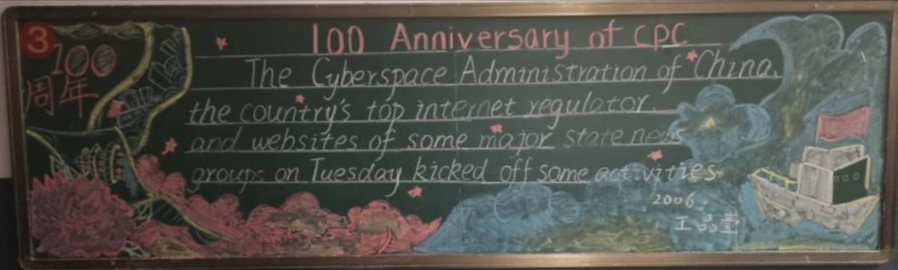 3
100
周年
100 Anniversary of CPC
The Cyberspace Administration of China,
the country's top internet regulator,
and websites of some major state news
groups on Tuesday kicked off some activities
2006